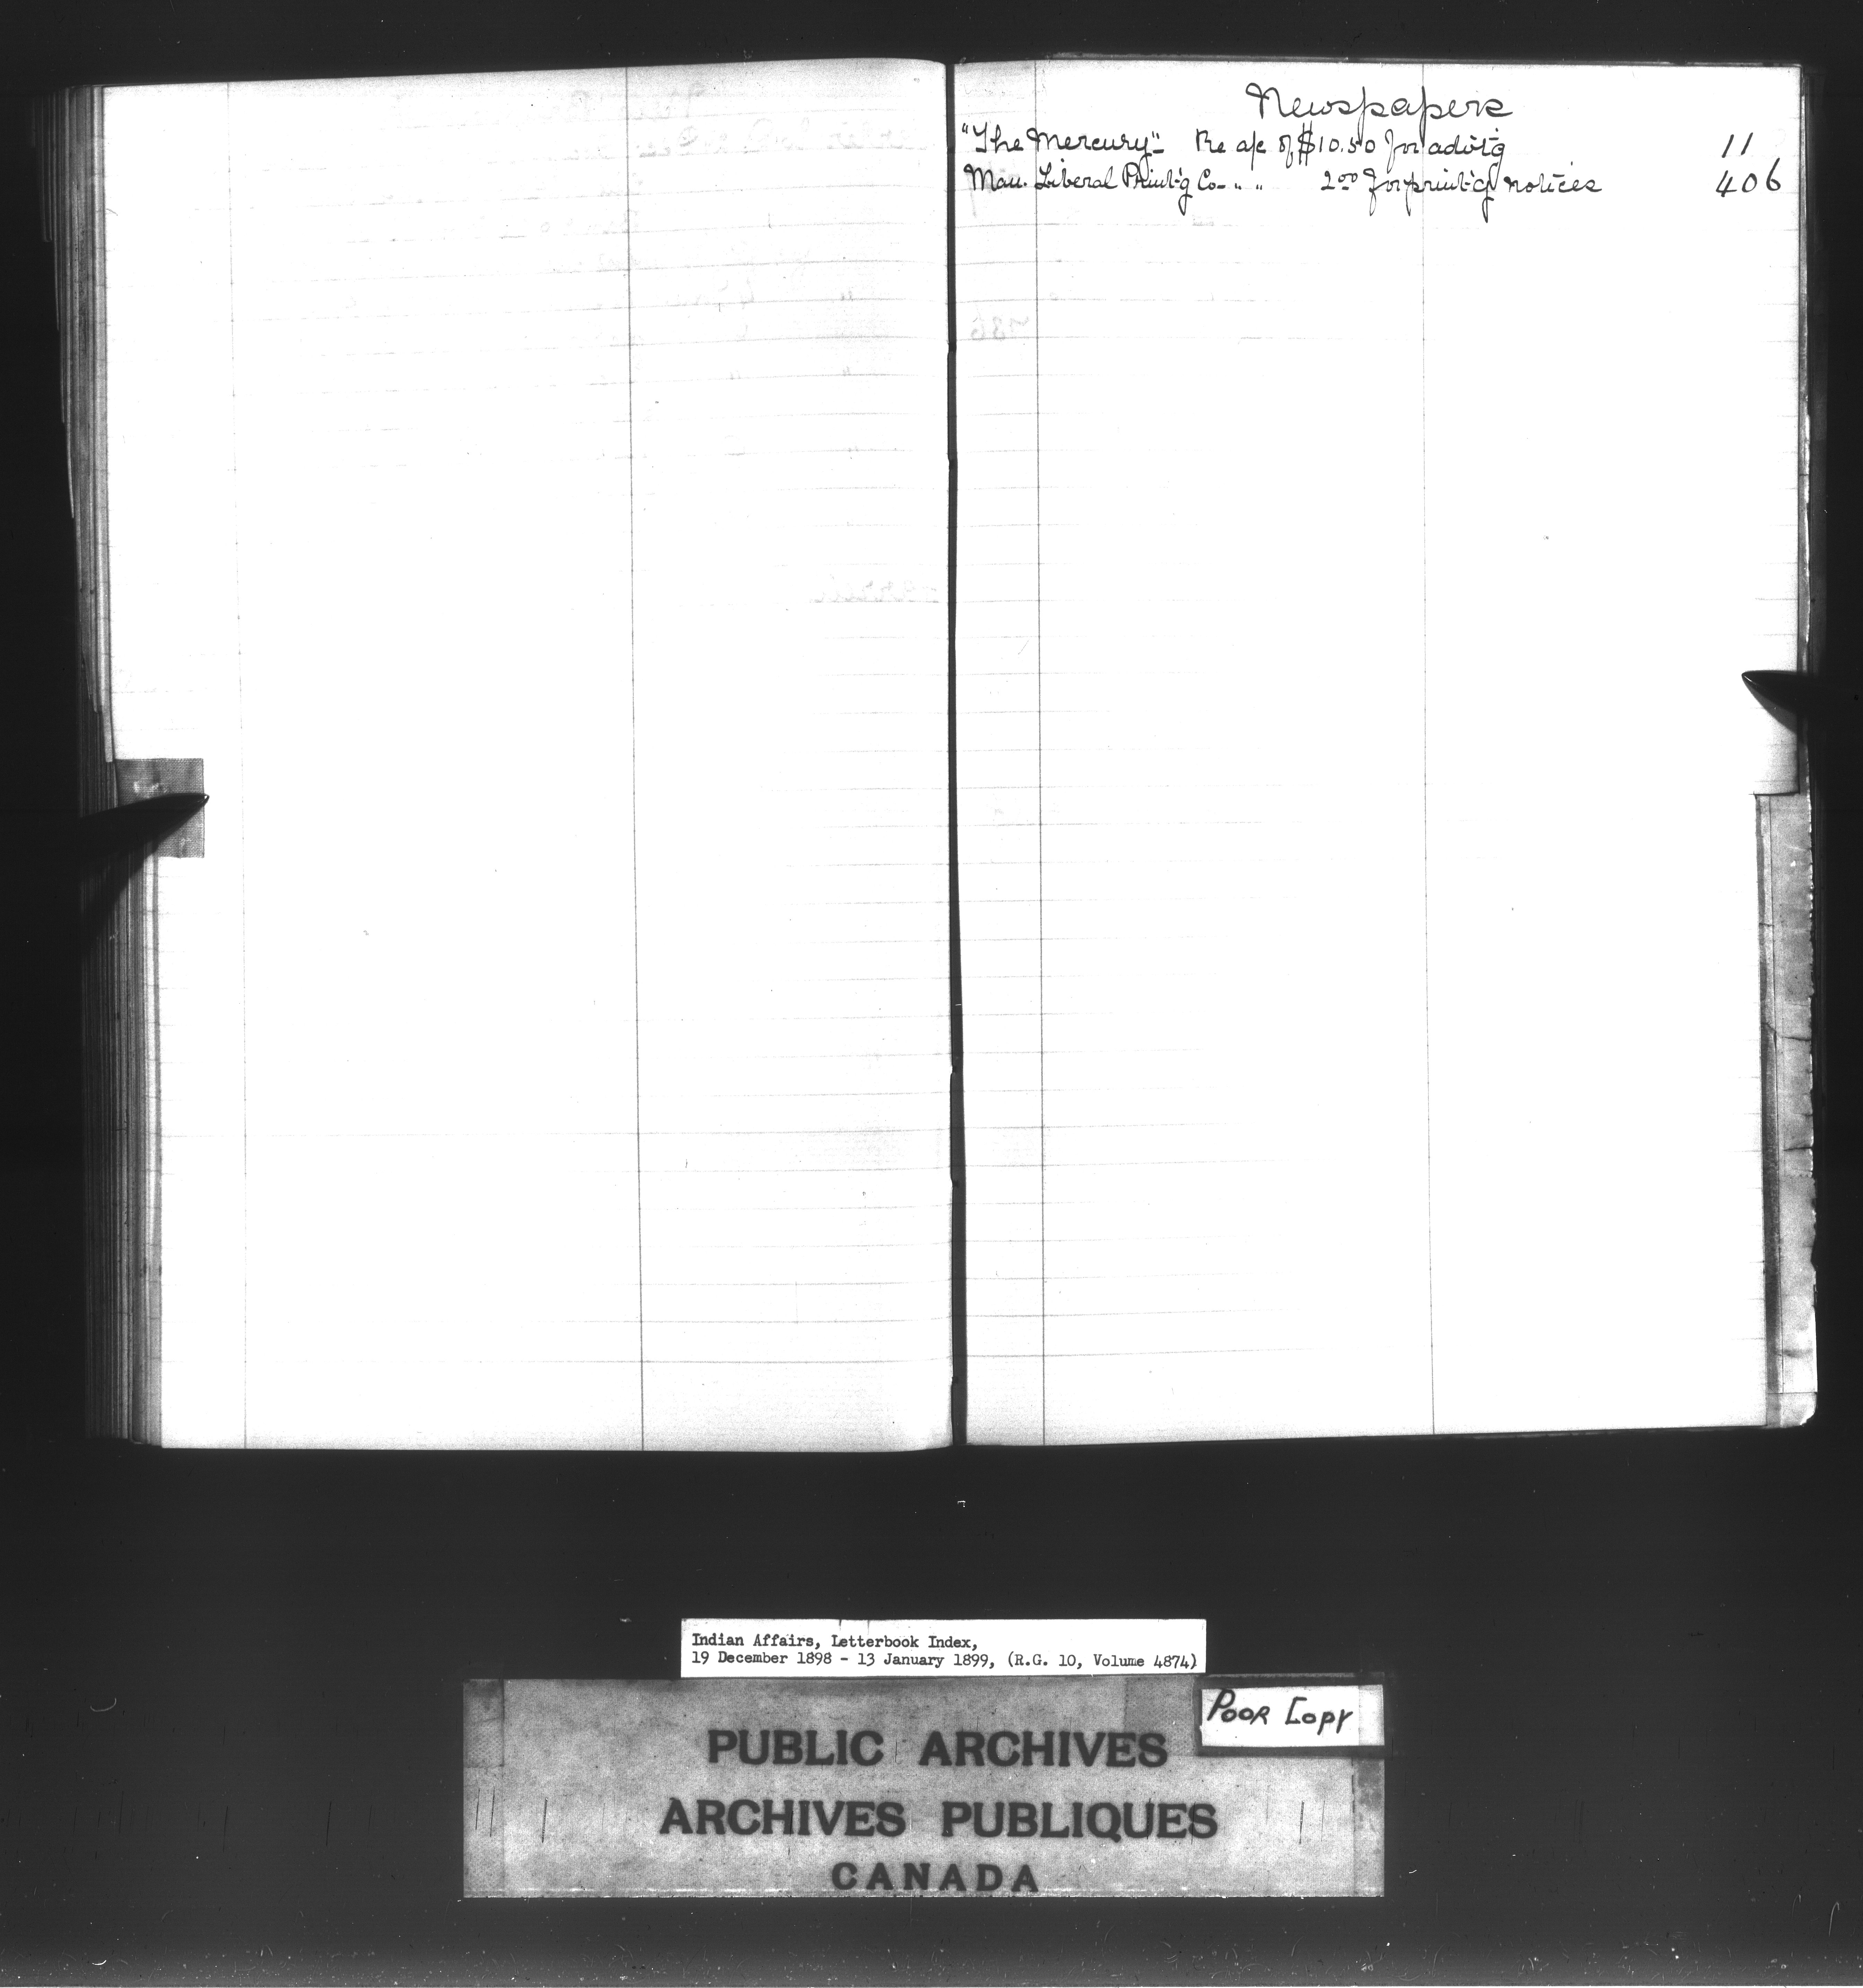 Newspapers
"The Mercury" - Re a/c of $10.50 for advt'g 11
Man. Liberal Print'g Co - " " 2.00 for print'g notices 406
Indian Affairs, Letterbook Index,
19 December 1898 - 13 January 1899, (R.G. 10, Volume 4874)
POOR COPY
PUBLIC ARCHIVES
ARCHIVES PUBLIQUES
CANADA